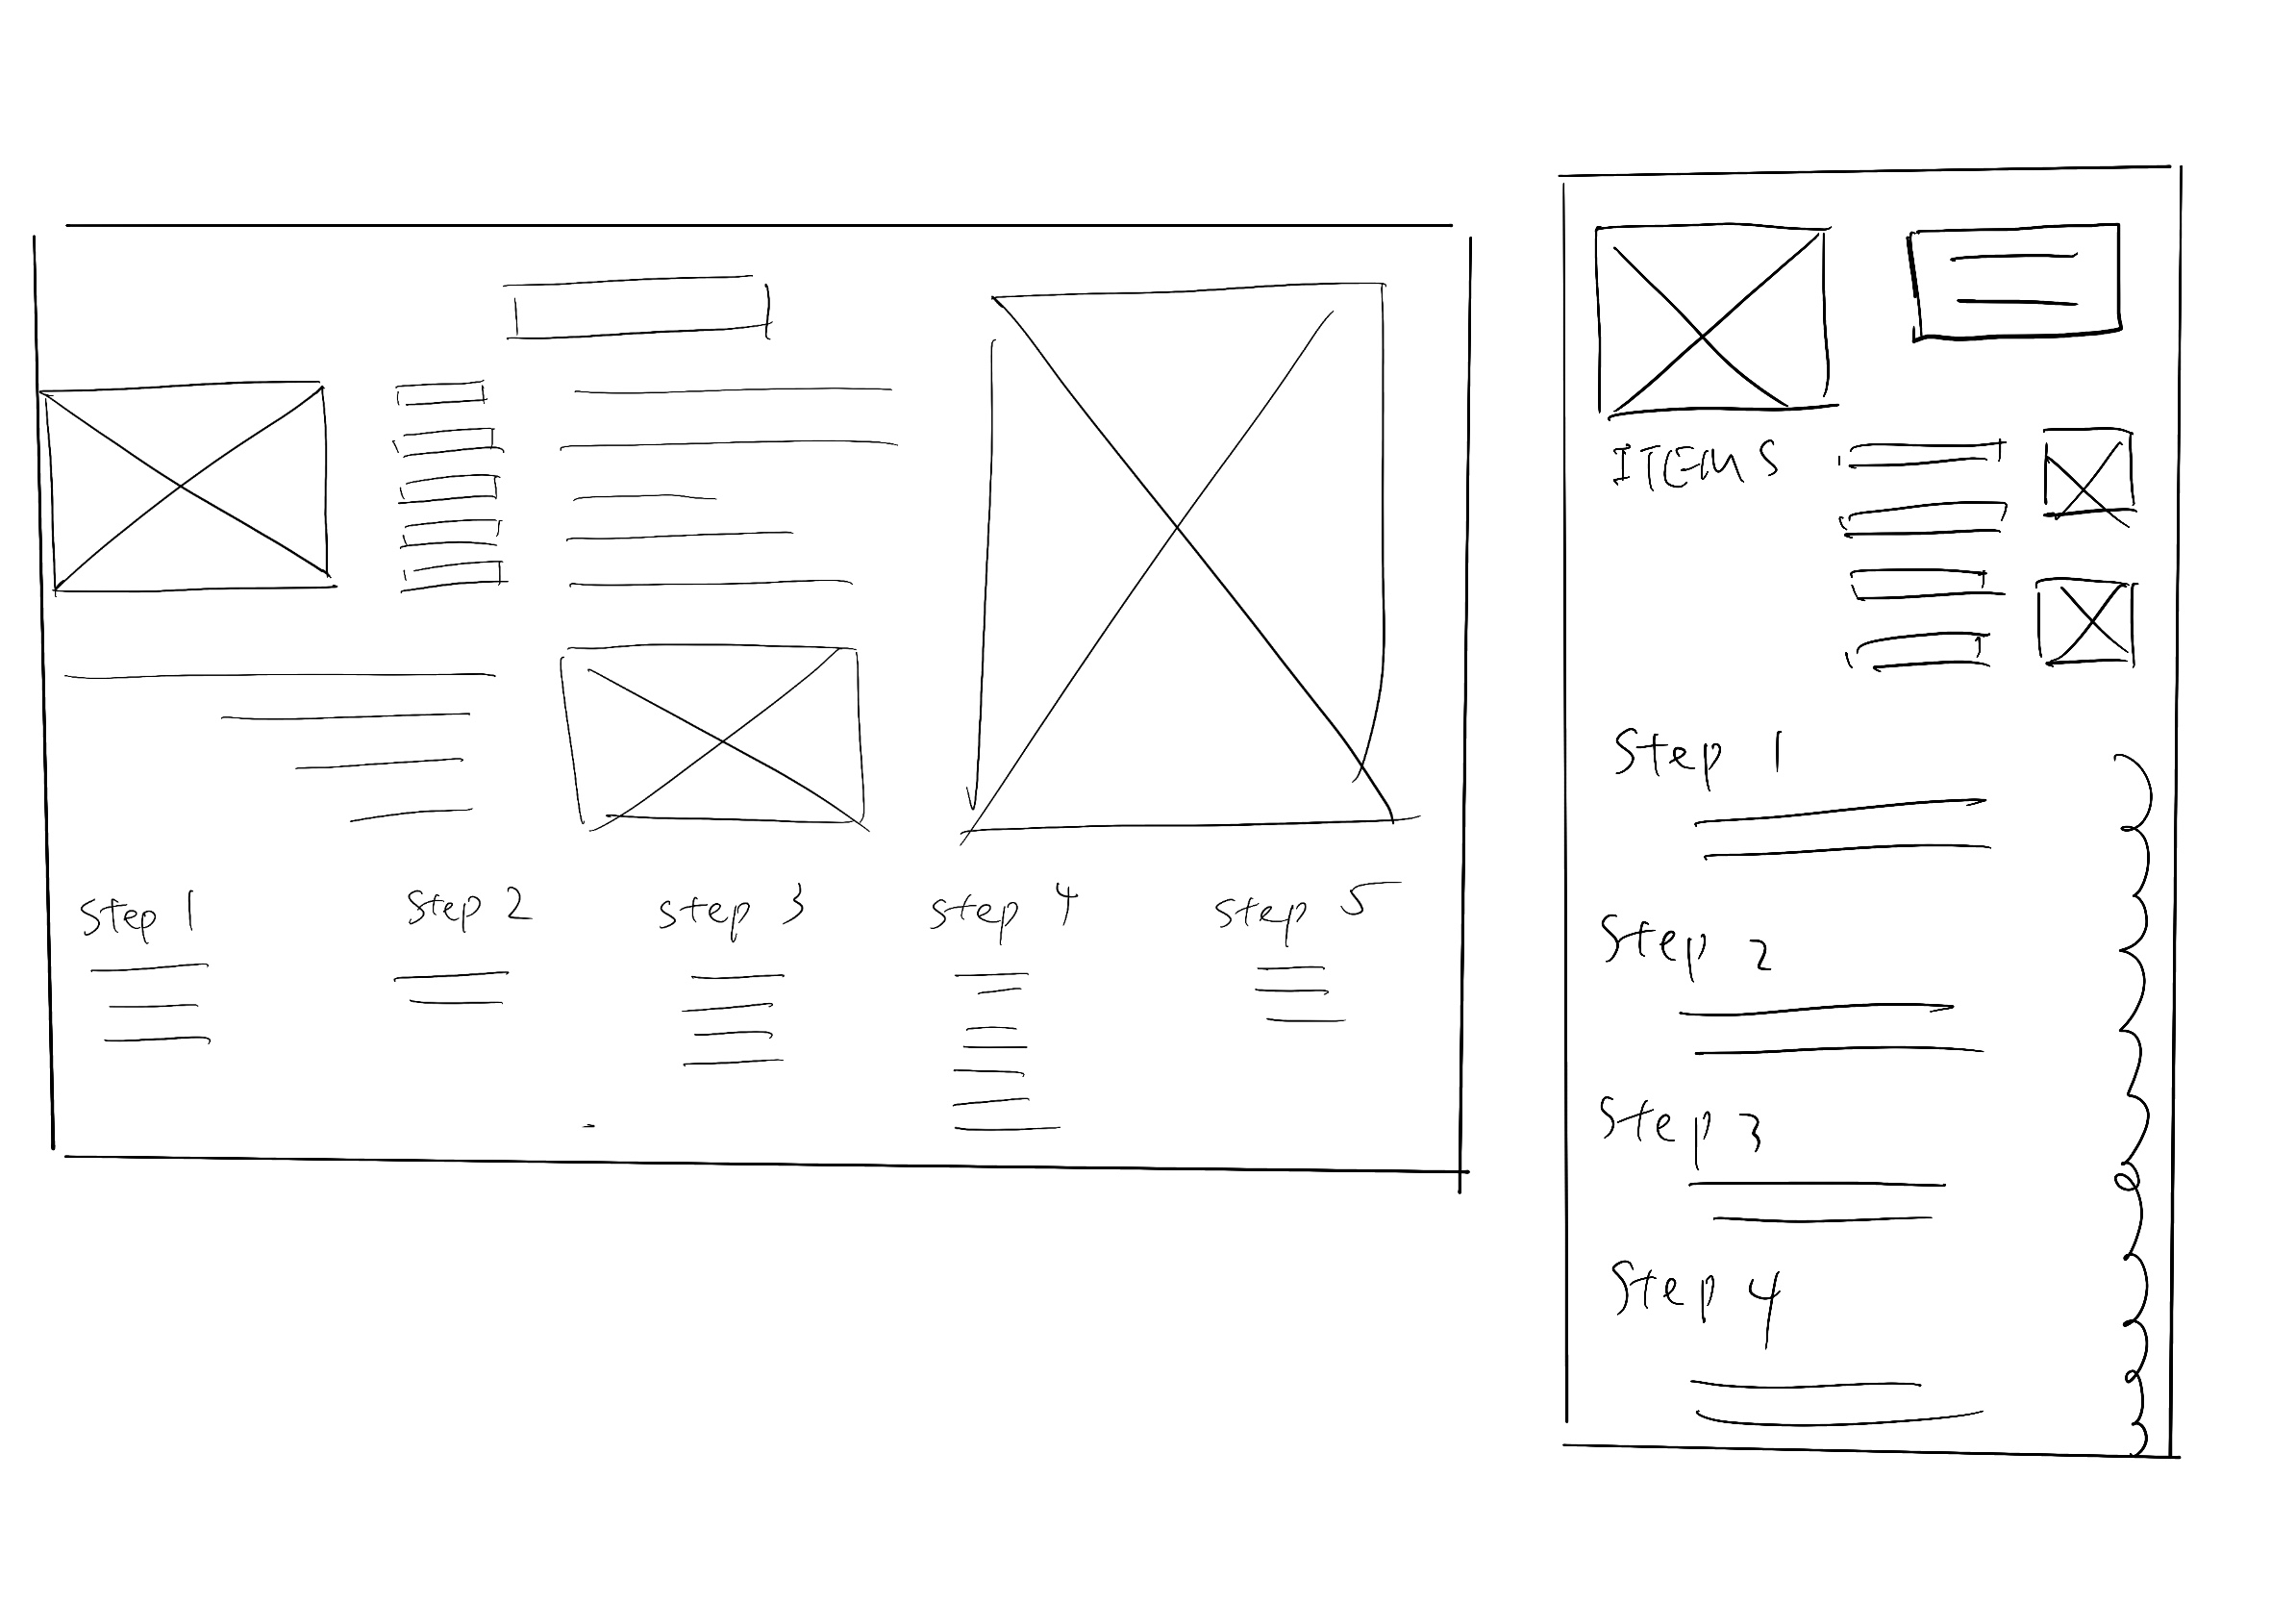 Step 1
Step 2
Step 3
Step 4
Step 5
ITEMS
Step 1
Step 2
Step 3
Step 4